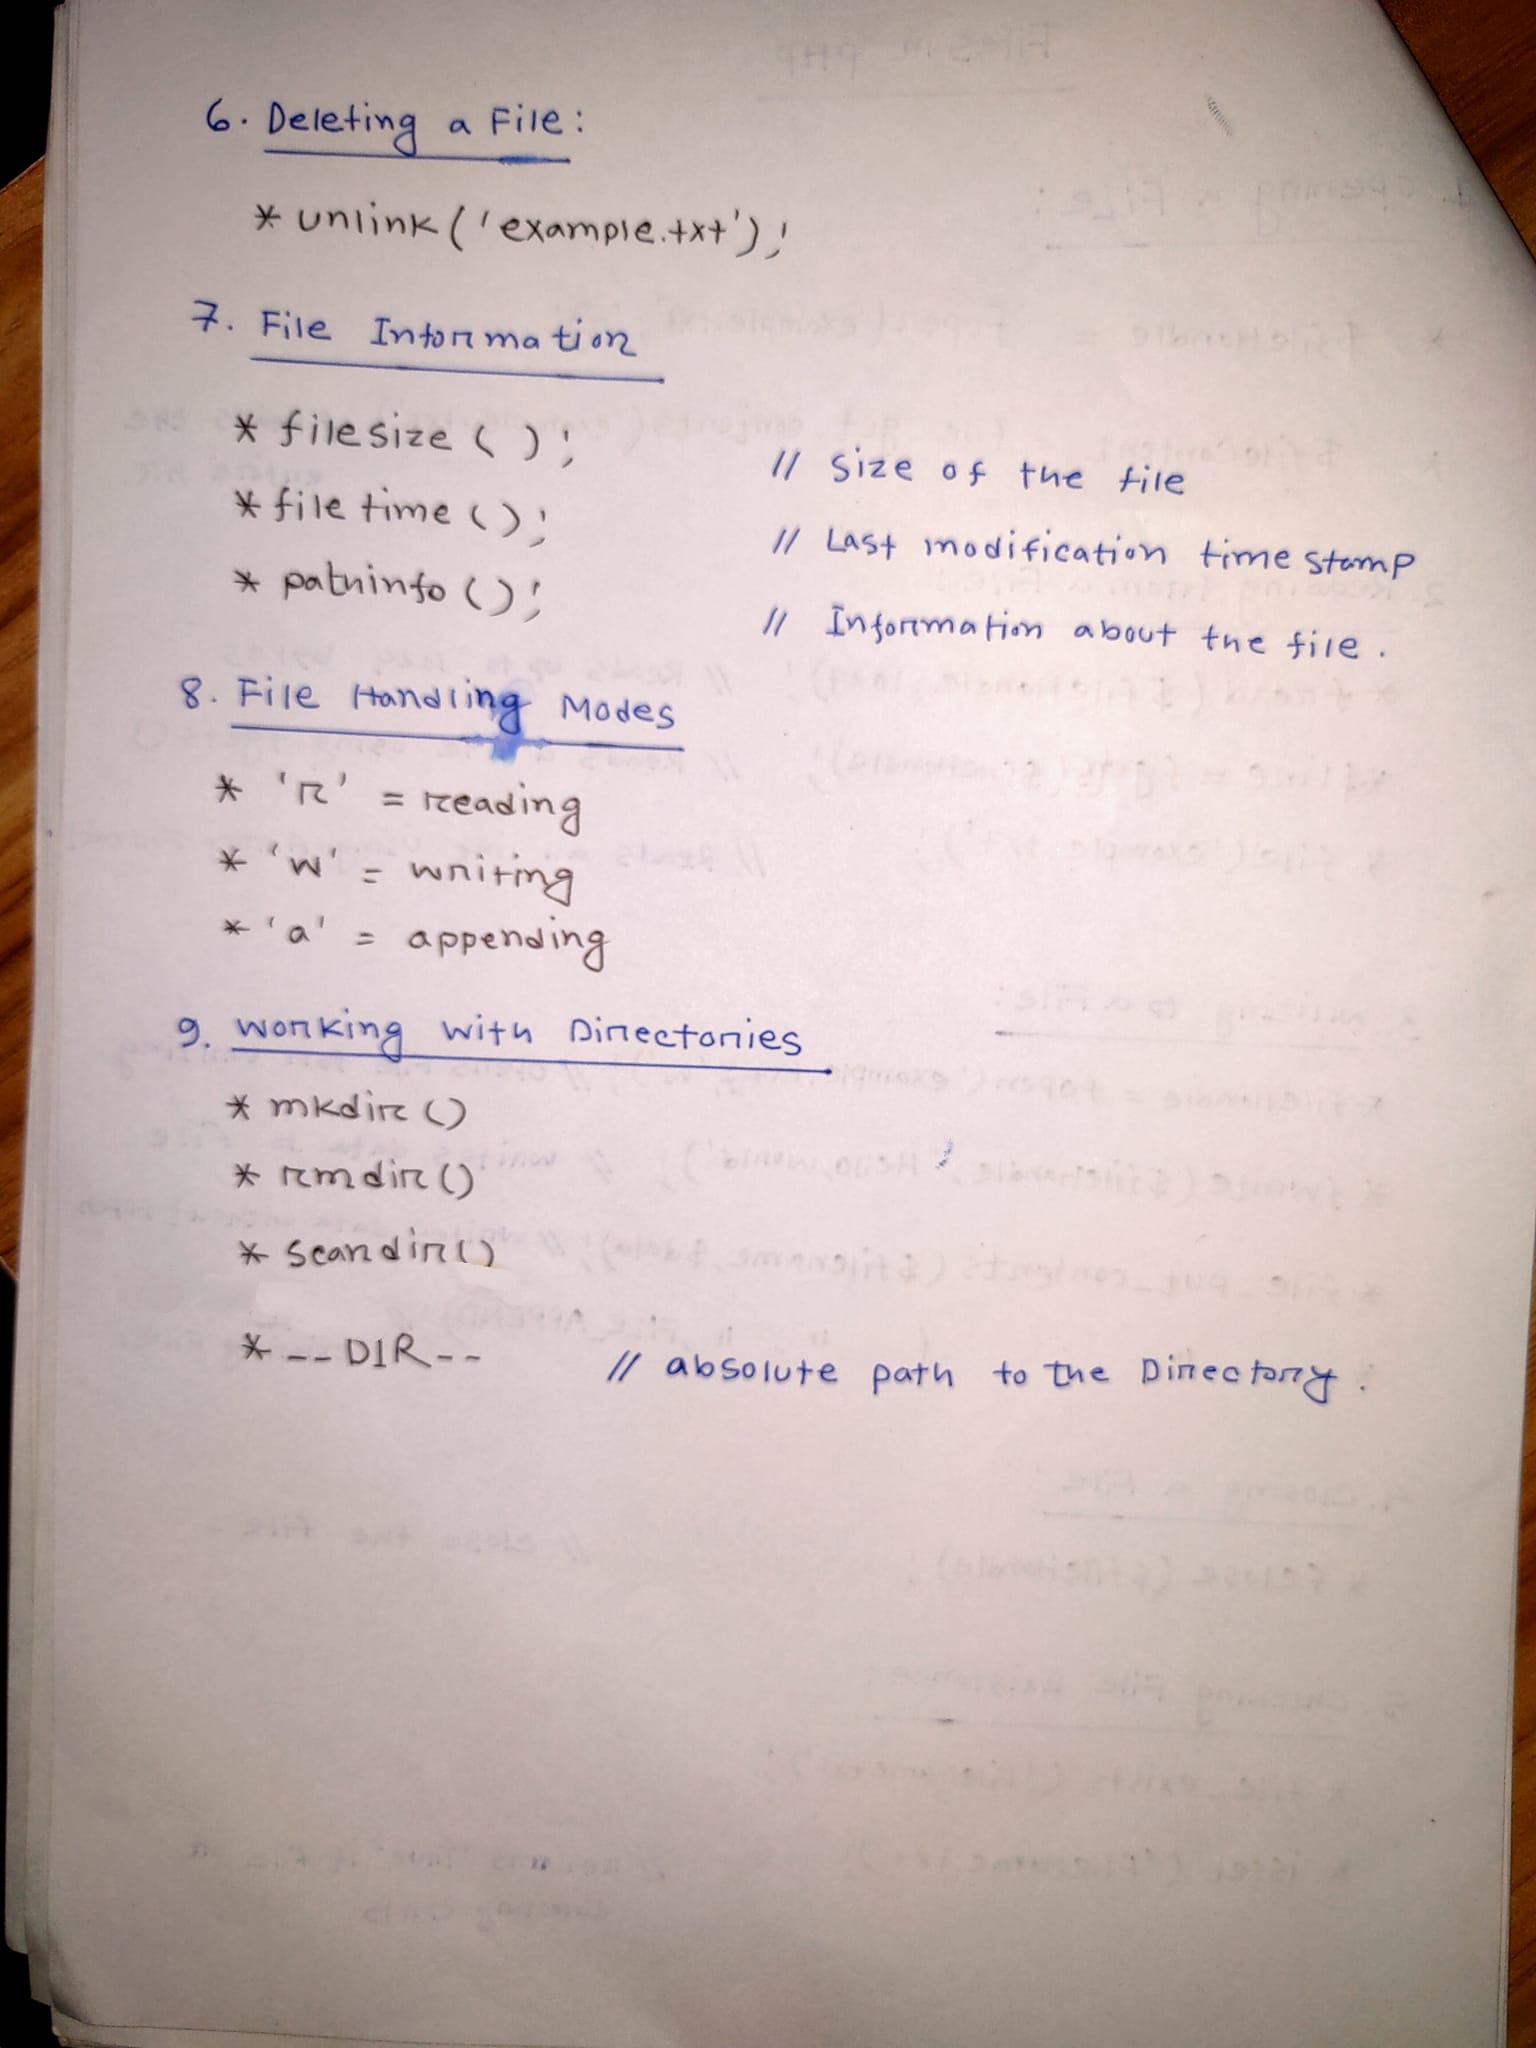 6. Deleting a File:
* unlink('example.txt');
7. File Information
* filesize ( ); // size of the file
* filetime (); // Last modification time stamp
* pathinfo (); // Information about the file.
8. File Handling Modes
* 'r' = reading
* 'w' = writing
* 'a' = appending
9. Working with Directories
* mkdir ()
* rmdir ()
* scandir()
* __DIR__ // absolute path to the Directory.